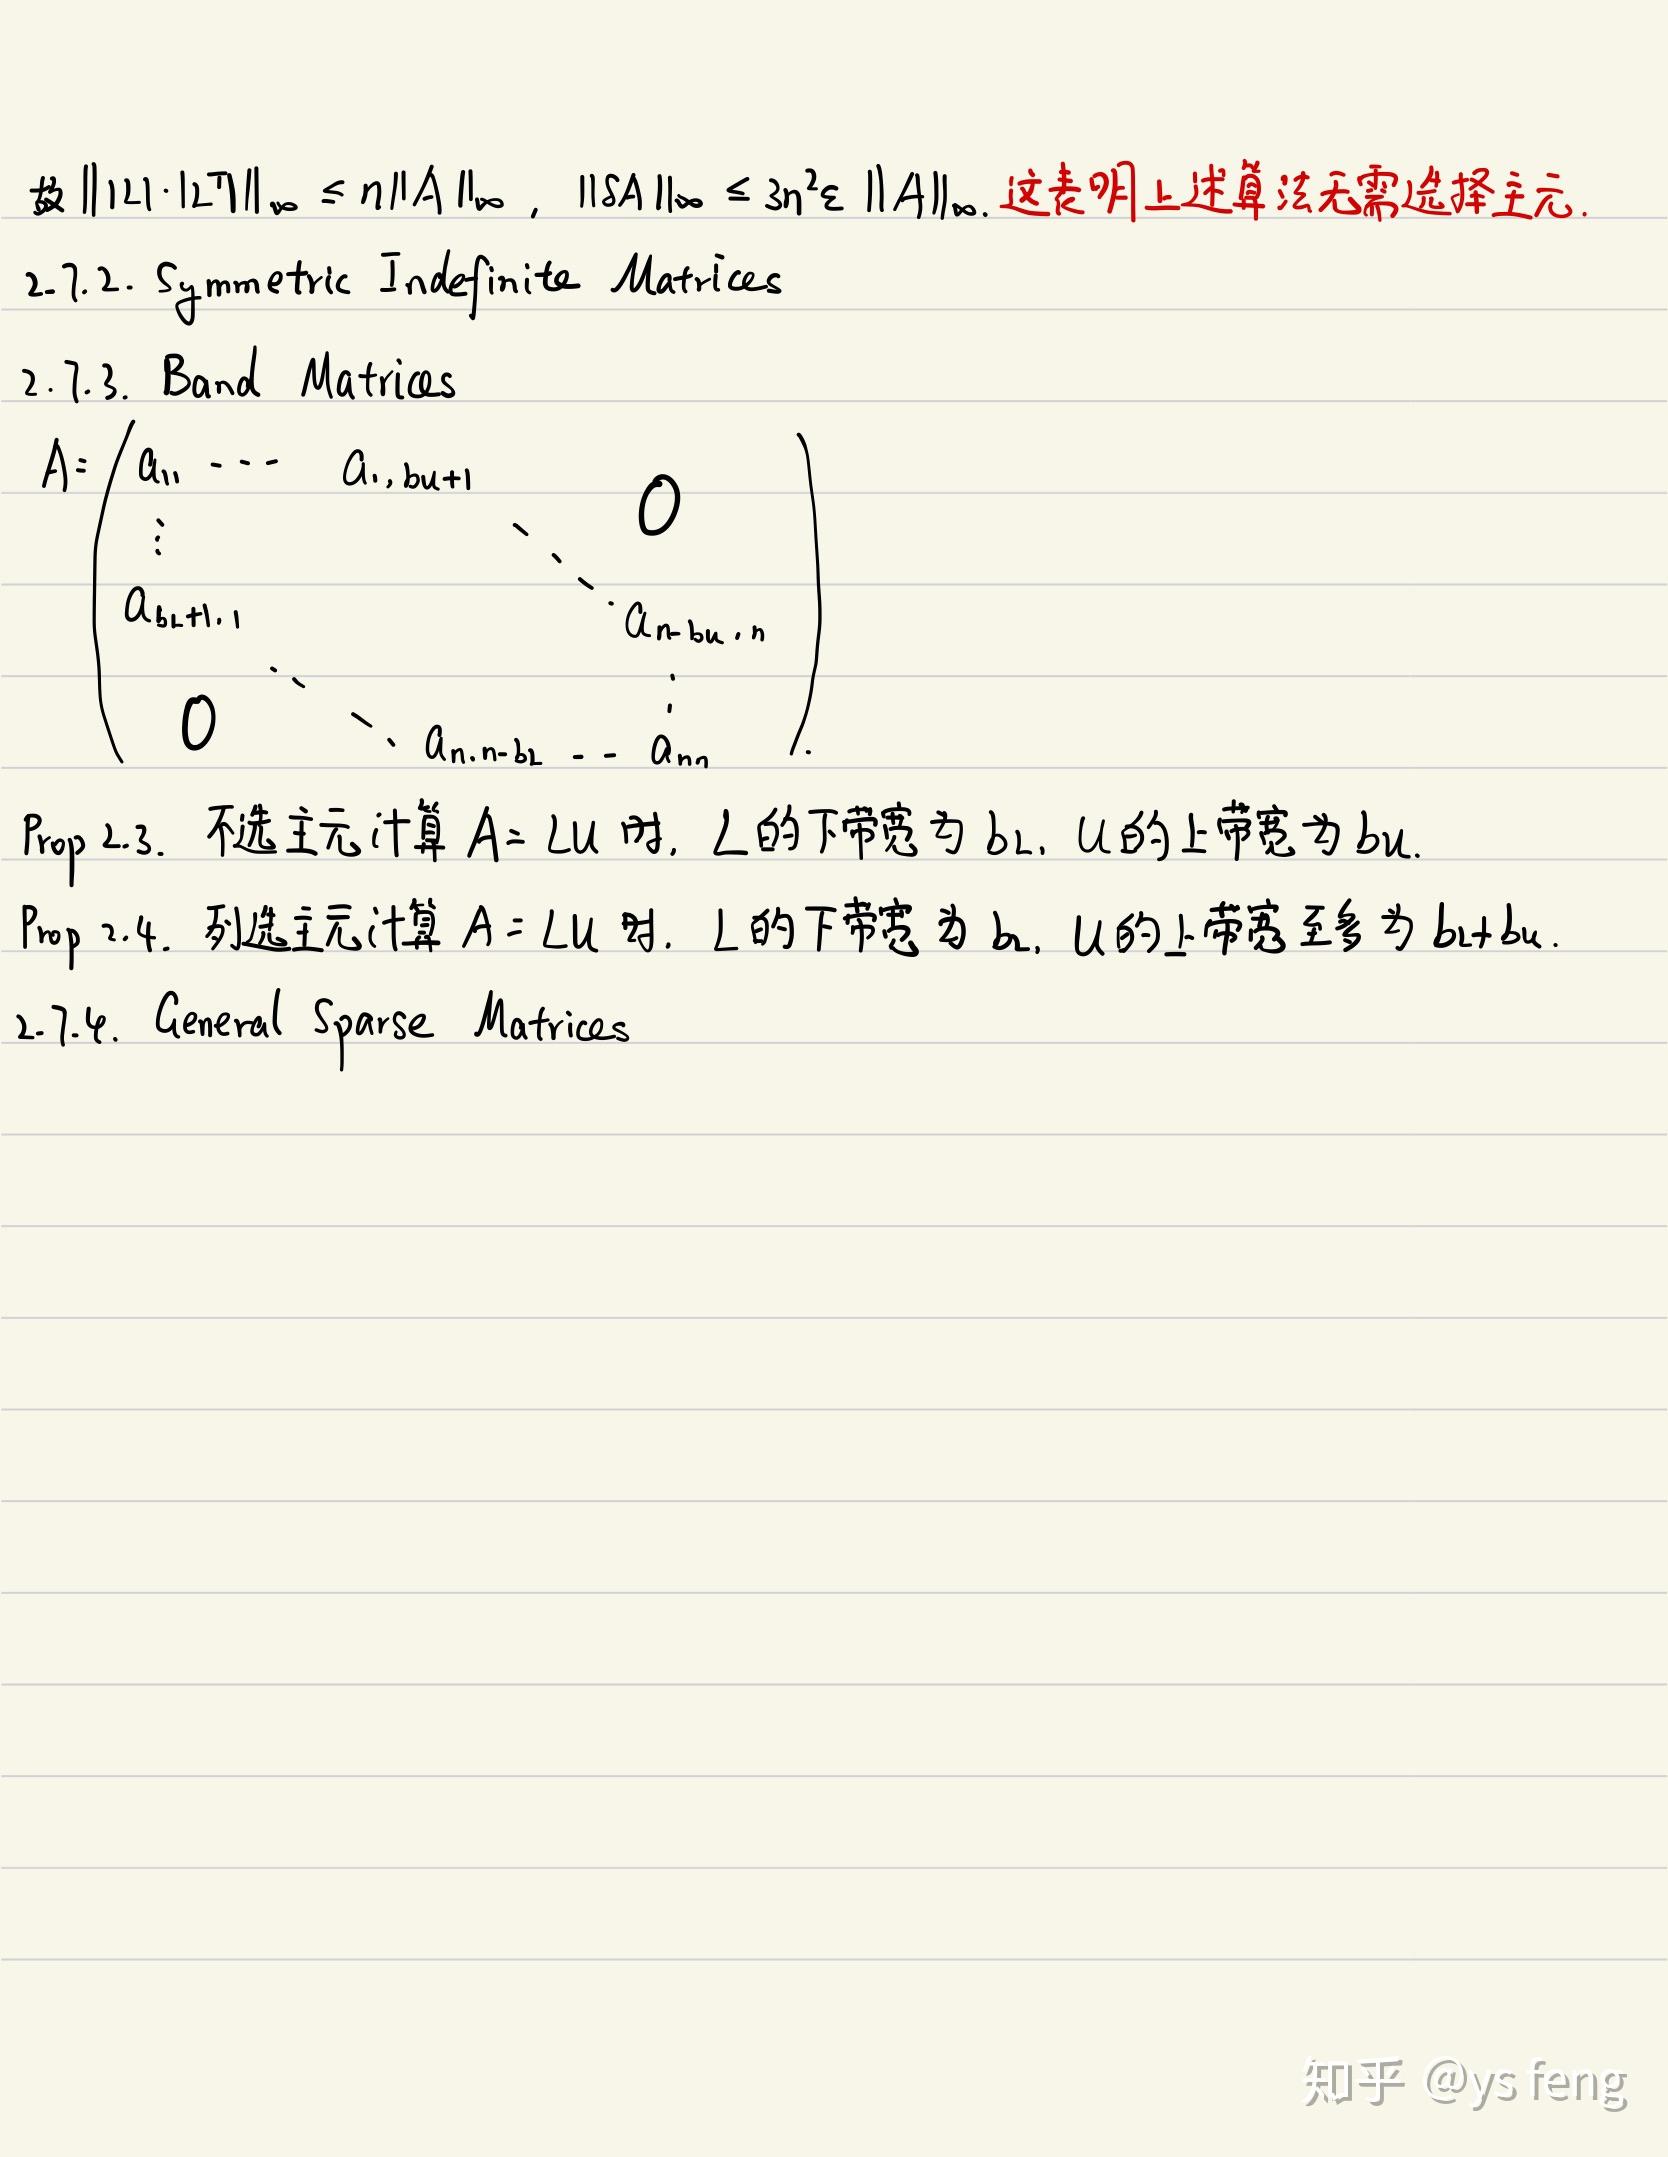 故 || |L|·|L^T| ||_∞ ≤ n||A||_∞, ||δA||_∞ ≤ 3n²ε ||A||_∞. 这表明上述算法无需选择主元.
2.7.2. Symmetric Indefinite Matrices
2.7.3. Band Matrices
A= ( a_11 --- a_1,bu+1 0
⋮ ⋱
a_bL+1,1 a_n-bu,n
⋱ ⋮
0 a_n,n-bL -- a_nn ).
Prop 2.3. 不选主元计算 A=LU 时, L的下带宽为 bL, U的上带宽为 bu.
Prop 2.4. 列选主元计算 A=LU 时, L的下带宽为 bL, U的上带宽至多为 bL+bu.
2.7.4. General Sparse Matrices
知乎 @ys feng